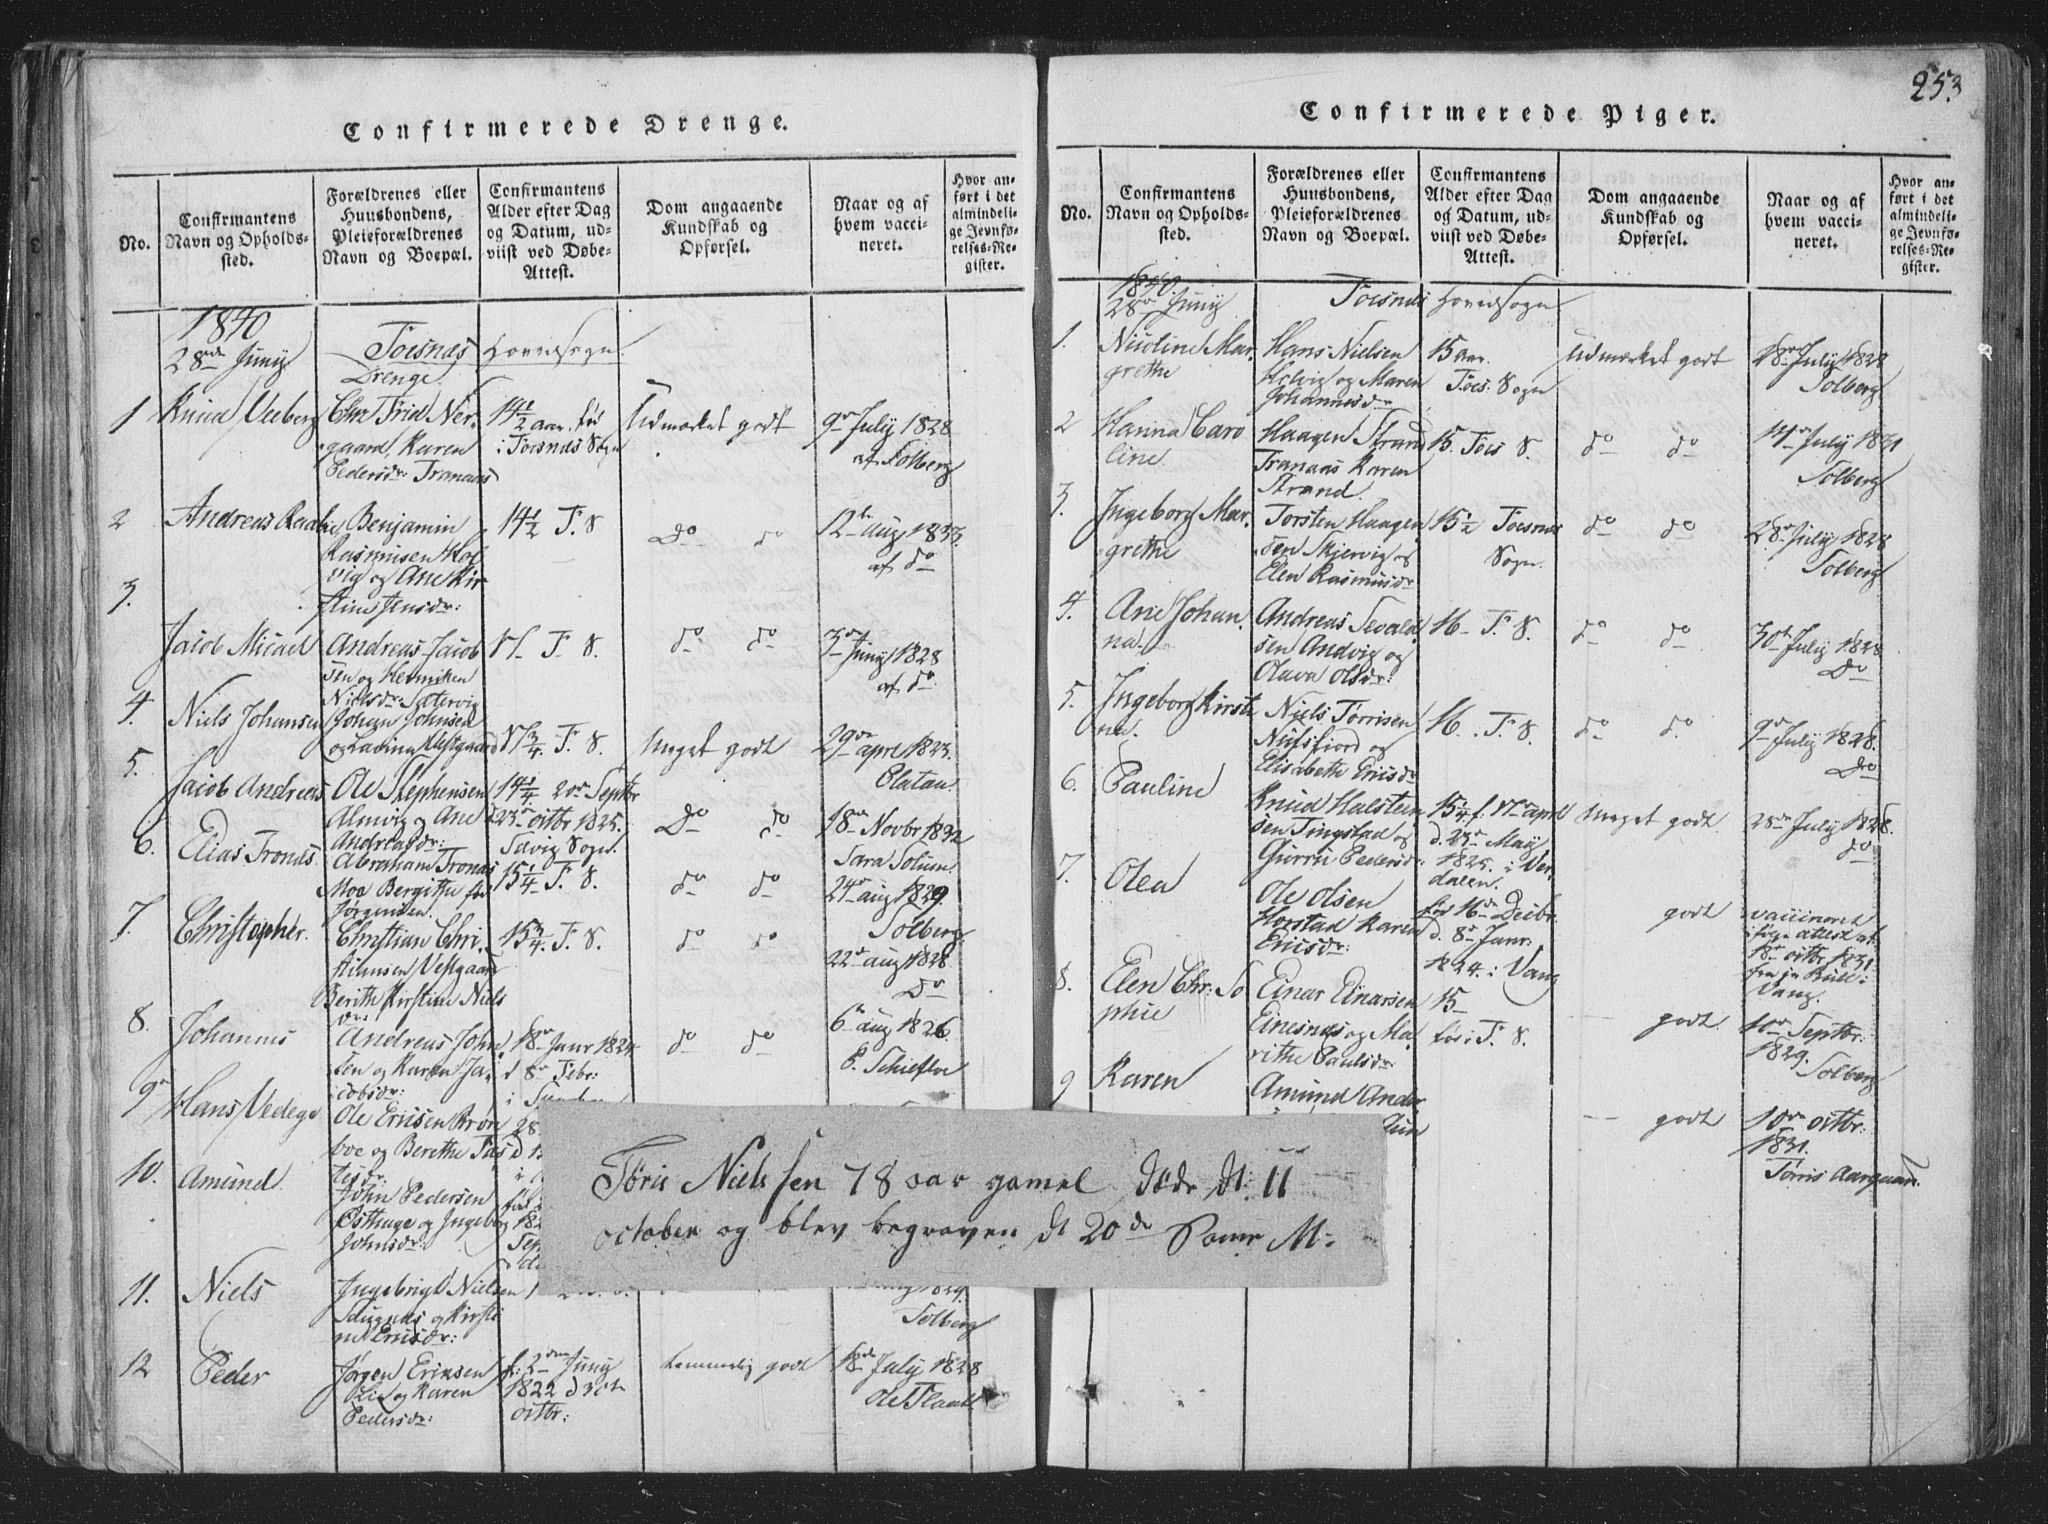 Confirmerede Drenge.
No.
Confirmantens
Navn og Opholds-
sted.
Forældrenes eller
Huusbondens,
Pleieforældrenes
Navn og Boepæl.
Confirmantens
Alder efter Dag
og Datum, ud-
viist ved Døbe-
Attest.
Dom angaaende
Kundskab og
Opførsel.
Naar og af
hvem vacci-
neret.
Hvor an-
ført i det
almindeli-
ge Jevnfø-
relses-Re-
gister.
1840
28de Junij
Foesnæs Hovedsogn.
Drenge.
1
Knud Veeberg
gaard, Karen
Pedersdr Tranaas
14 1/2 aar. fød
i Foesnæs Sogn
Udmærket godt
9de July 1828
af Solberg
2
Benjamin
Rasmusen Hol
vig og Ane Kir
stine Jensdr:
14 1/2 F. S
Do do
12te Aug 1833.
af do
3.
Jacob Micael
Andreas Jacob
sen og
Nielsdr: Sætervig
F. S.
do do
3die Junij 1828
af do
4.
Niels Johansen
Johan Johnsen
og Vestgaard
F. S.
Meget godt
29de apr
5.
Jacob Andreas
Ole Stephensen
Almvig og Ane
Andreasdr:
14 1/4 20de Septbr
d 23de octbr 1825.
Sogn.
Do do
18de Novbr 1832
Sara Solum
6.
Elias Tronds.
Abraham Tronds
Moa Bergithe
Jørgensen.
15 1/4 F. S.
do do
24de aug 1829.
Solberg
7.
Christopher.
Christian Chri
stiansen Vestgaard
Berith Kirstine Niels
dr:
15 3/4. F. S.
do do
22de aug 1828
Do
8.
Johannes
Andreas John
sen og Karen Ja-
cobsdr:
18de Janr 1824
d 8de Febr:
do do
6te aug 1826
9
Hans
Ole Ericsen
boe og Berethe
28
10.
Amund
John Pedersen
og Ingeborg
Johnsdr:
11.
Niels
Ingebrigt Nielsen
og Kirsti
ne Ericsdr:
Solberg
12
Peder
Jørgen Ericksen
Lie og Karen
Pedersdr:
f: 2den Junij
1822 d 30te
octbr:
temmelig godt
18de July 1828
Ole
Töris Nielssen 78 aar gamel döde dt: 11
october og blev begraven dt 20de Same M:
253
Confirmerede Piger.
No.
Confirmantens
Navn og Opholds-
sted.
Forældrenes eller
Huusbondens,
Pleieforældrenes
Navn og Boepæl.
Confirmantens
Alder efter Dag
og Datum, ud-
viist ved Døbe-
Attest.
Dom angaaende
Kundskab og
Opførsel.
Naar og af
hvem vacci-
neret.
Hvor an-
ført i det
almindeli-
ge Jevnfø-
relses-Re-
gister.
1840.
28de Junij
Foesnæs Hovedsogn
1.
Nicoline Mar.
grethe
Hans Nielsen
Holvig og Maren
Johannesdr
15 aar.
Foes: Sogn
Udmærket godt
28de July 1828
Solberg
2
Hanna Caro
line
Haagen Strand
Tranaas Karen
Strand.
15. Foes S.
do do
July 1831
Solberg
3.
Ingeborg Mar.
grethe
Torsten Haagen
sen Skjervig og
Elen Rasmusdr
15 1/2 Foesnæs
Sogn.
do do
28de July 1828
Solberg
4.
Ane Johan.
na.
Andreas Sevald
sen Andvig og
Olava Olsdr:
16 F. S.
do do
30te July 1828
Do
5.
Ingeborg Kirsti
ne.
Niels Torrisen
og
Elisabeth Ericsdr
16. F. S.
do do.
9de July 1828.
Do
6.
Pauline
Knud Halsteen
sen Tingstad og
Gurru Pedersdr
15 1/4 f. 17de april
d. 23de May
1825. i Ver
dalen.
Meget godt.
28de July 1828.
do
7.
Olea
Ole Olsen
Horstad Karen
Ericsdr:
fød 16de Decbr
d. 8de Janr:
1824. i Vang
godt
vaccineret
ifølge attest af
18de octbr 1831
fra
Vang.
8.
Elen Chr: So
phie
Einar Einarsen
Einesnæs og Ma
rithe Paulsdr:
15
fød i F. S.
godt.
10de Septbr:
1829.
Solberg
9
Karen
Amund Ander
godt
10de octbr:
1831.
Tørris Aargaard.